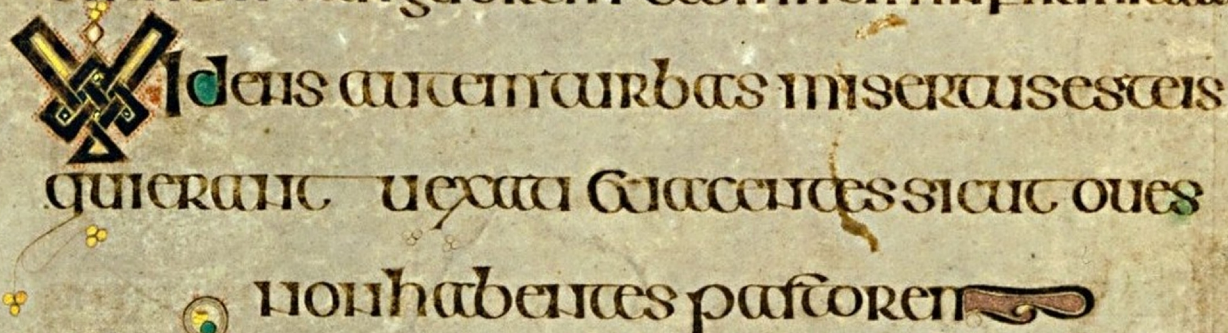 Videns autem turbas misertus est eis
qui erant uexati et iacentes sicut oues
non habentes pastorem